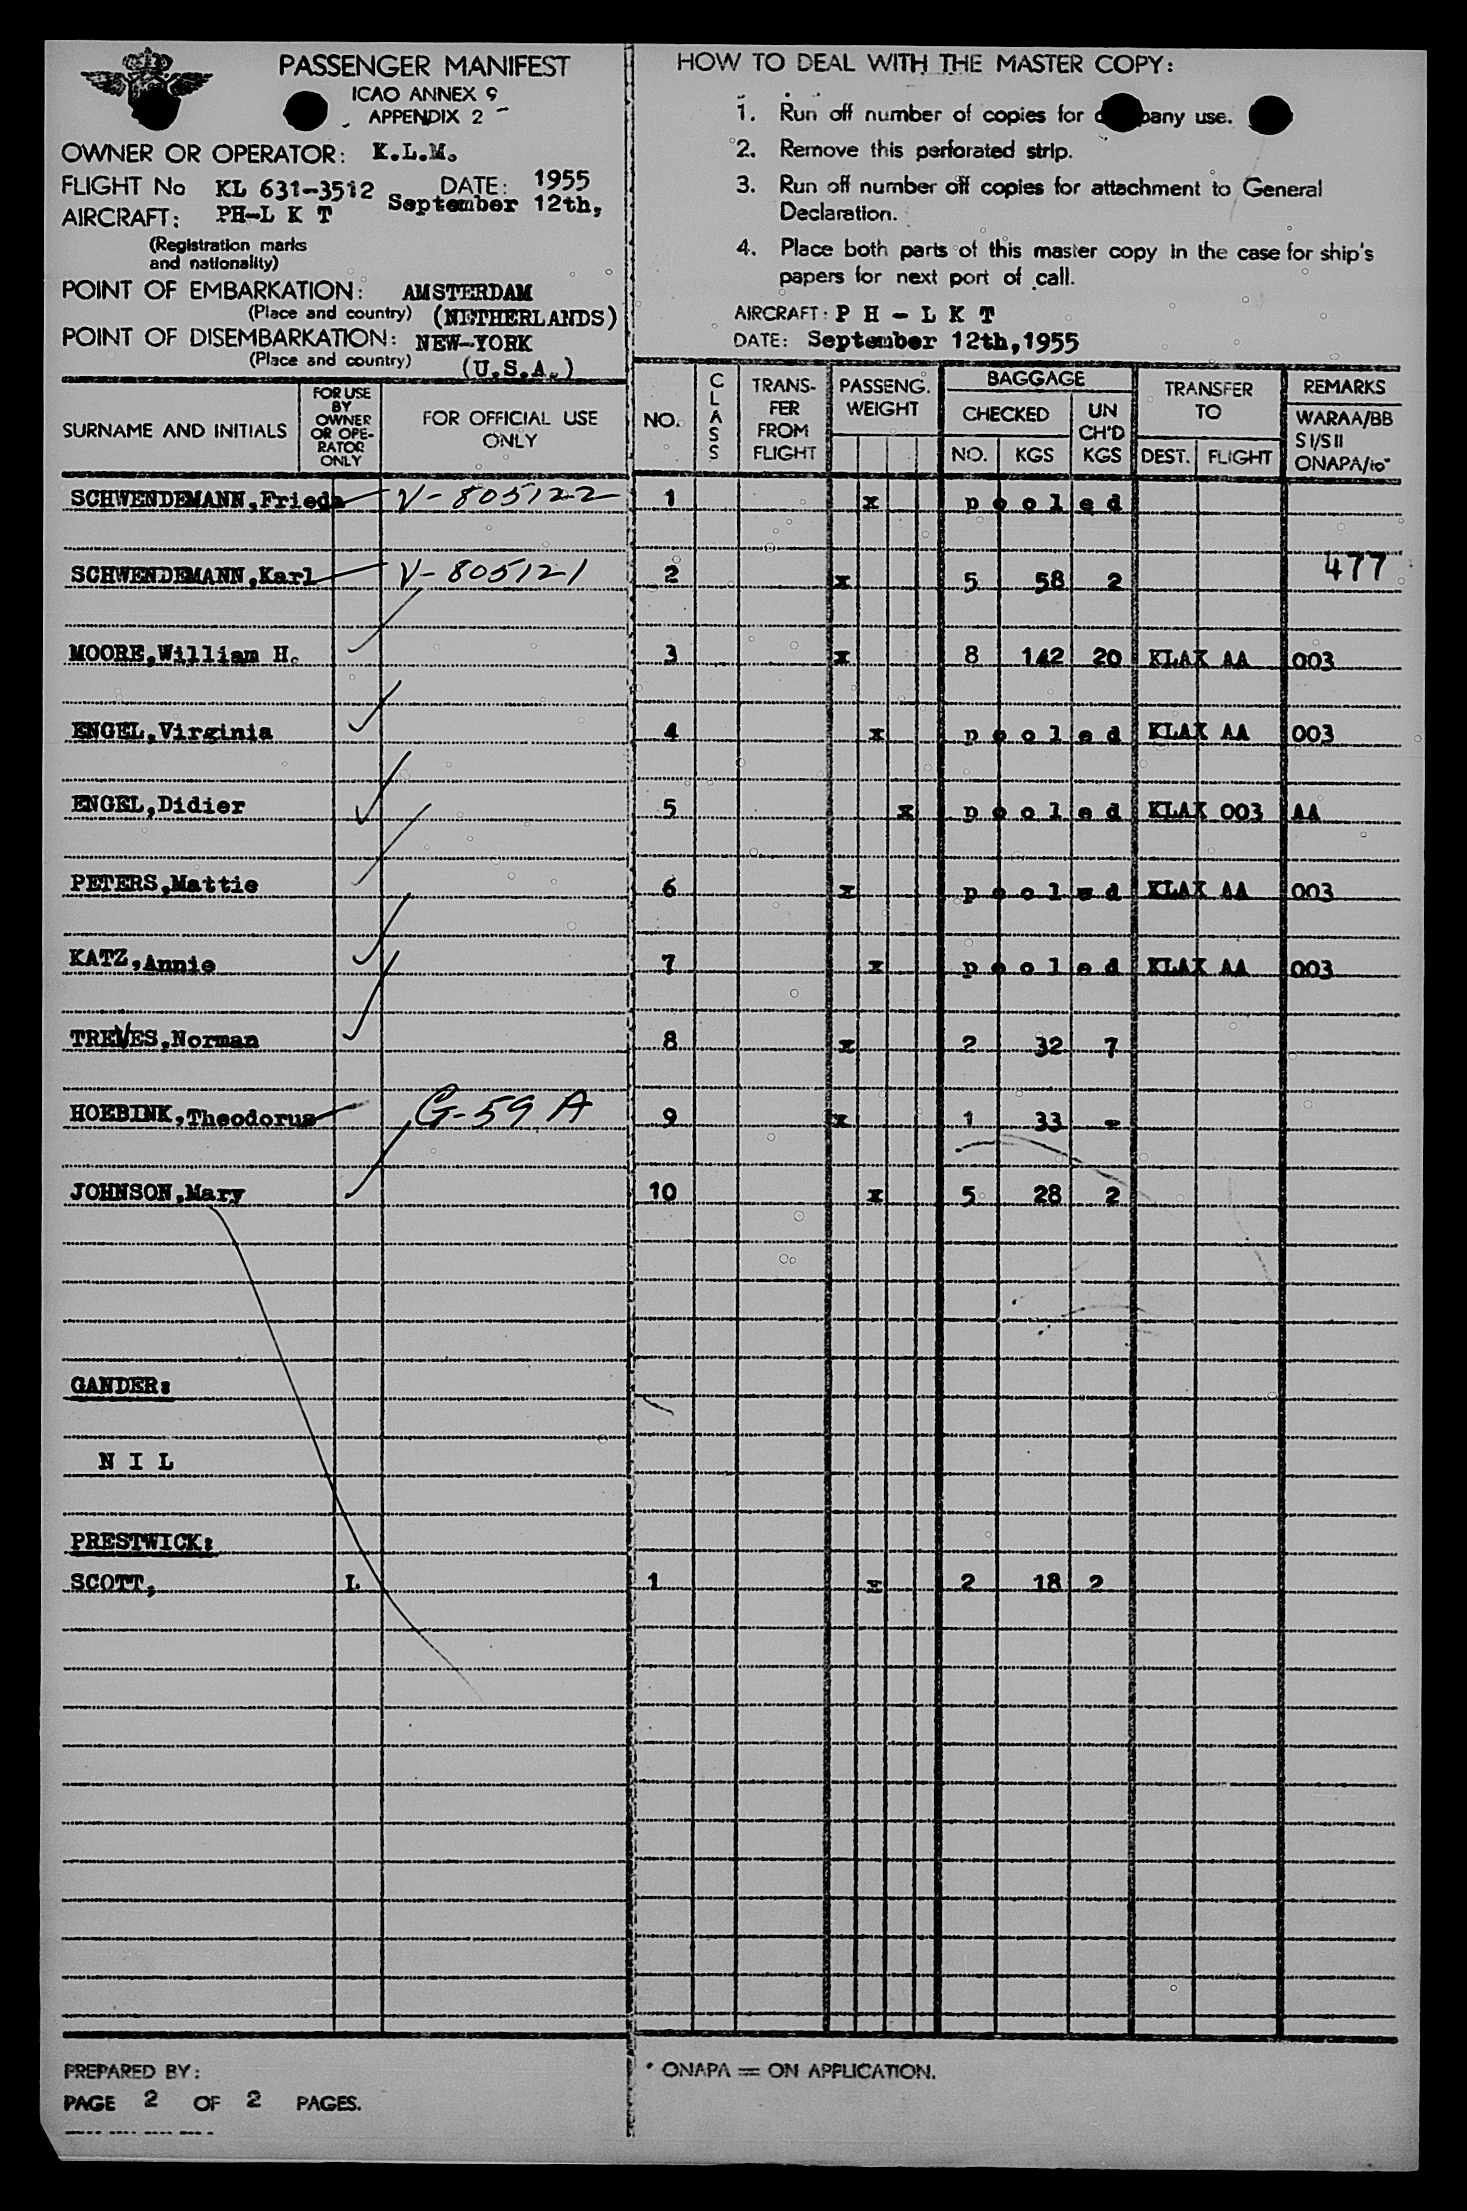 PASSENGER MANIFEST
ICAO ANNEX 9
APPENDIX 2
OWNER OR OPERATOR: K.L.M.
FLIGHT No KL 631-3512 DATE: 1955
September 12th,
AIRCRAFT: PH-L K T
(Registration marks
and nationality)
POINT OF EMBARKATION: AMSTERDAM
(Place and country) (NETHERLANDS)
POINT OF DISEMBARKATION: NEW-YORK
(Place and country) (U.S.A.)
HOW TO DEAL WITH THE MASTER COPY:
1. Run off number of copies for company use.
2. Remove this perforated strip.
3. Run off number off copies for attachment to General
Declaration.
4. Place both parts of this master copy in the case for ship's
papers for next port of call.
AIRCRAFT: P H - L K T
DATE: September 12th,1955
SURNAME AND INITIALS
FOR USE
BY
OWNER
OR OPE-
RATOR
ONLY
FOR OFFICIAL USE
ONLY
NO.
CLASS
TRANS-
FER
FROM
FLIGHT
PASSENG.
WEIGHT
BAGGAGE
CHECKED
NO. KGS
UN
CH'D
KGS
TRANSFER
TO
DEST. FLIGHT
REMARKS
WARAA/BB
S I/S II
ONAPA/to*
SCHWENDEMANN,Frieda V-805122 1 x p o o l e d
477
SCHWENDEMANN,Karl V-805121 2 x 5 58 2
MOORE,William H. 3 x 8 142 20 KLAX AA 003
ENGEL,Virginia 4 x p o o l e d KLAX AA 003
ENGEL,Didier 5 x p o o l e d KLAX 003 AA
PETERS,Mattie 6 x p o o l e d KLAX AA 003
KATZ,Annie 7 x p o o l e d KLAX AA 003
TREVES,Norman 8 x 2 32 7
HOEBINK,Theodorus G-59 A 9 x 1 33 -
JOHNSON,Mary 10 x 5 28 2
GANDER:
N I L
PRESTWICK:
SCOTT, L 1 x 2 18 2
PREPARED BY:
PAGE 2 OF 2 PAGES.
* ONAPA = ON APPLICATION.